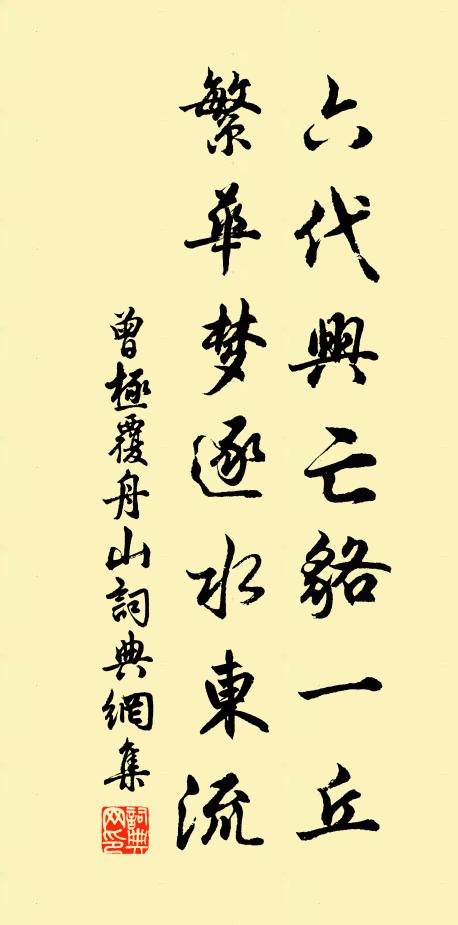 六代興亡貉一丘
繁華梦逐水東流
曾極覆舟山詞典網集
詞典网印